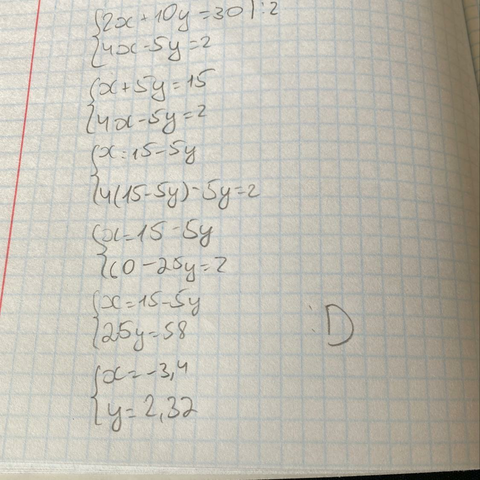 {2x+10y=30 |:2
{4x-5y=2
{x+5y=15
{4x-5y=2
{x=15-5y
{4(15-5y)-5y=2
{x=15-5y
{60-25y=2
{x=15-5y
{25y=58
:D
{x=-3,4
{y=2,32